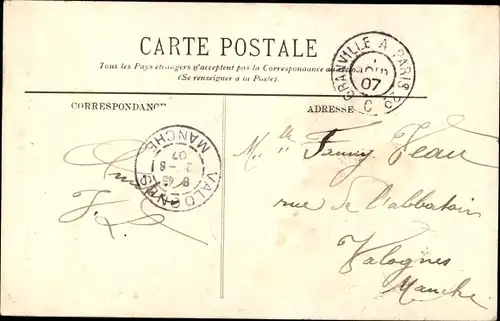 CARTE POSTALE
Tous les Pays étrangers n'acceptent pas la Correspondance au
(Se renseigner à la Poste)
CORRESPONDANCE
ADRESSE
GRANVILLE A PARIS
07
C
VALOGNES
MANCHE
07
Mlle Fanny Veau
rue de l'abbatoir
Valognes
Manche